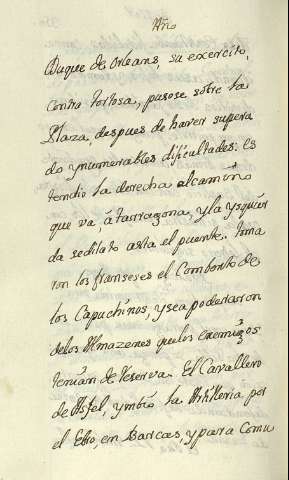 Año
Duque de Orleans, su exercito,
contra tortosa, pusose sôbre la
Plaza, despues de haver supera
do ynumerables dificultades: es
tendio la derecha alcamino
que va, á tarragona, y la ysquier
da sedilato asta el puente. toma
ron los franseses el Combento de
los Capuchinos, y sea poderaron
delos Almazenes quelos enemigos
tenian de reserva. El Cavallero
de Asfel, ymbio la Artilleria por
el Ebro, en Barcas, y para Comu